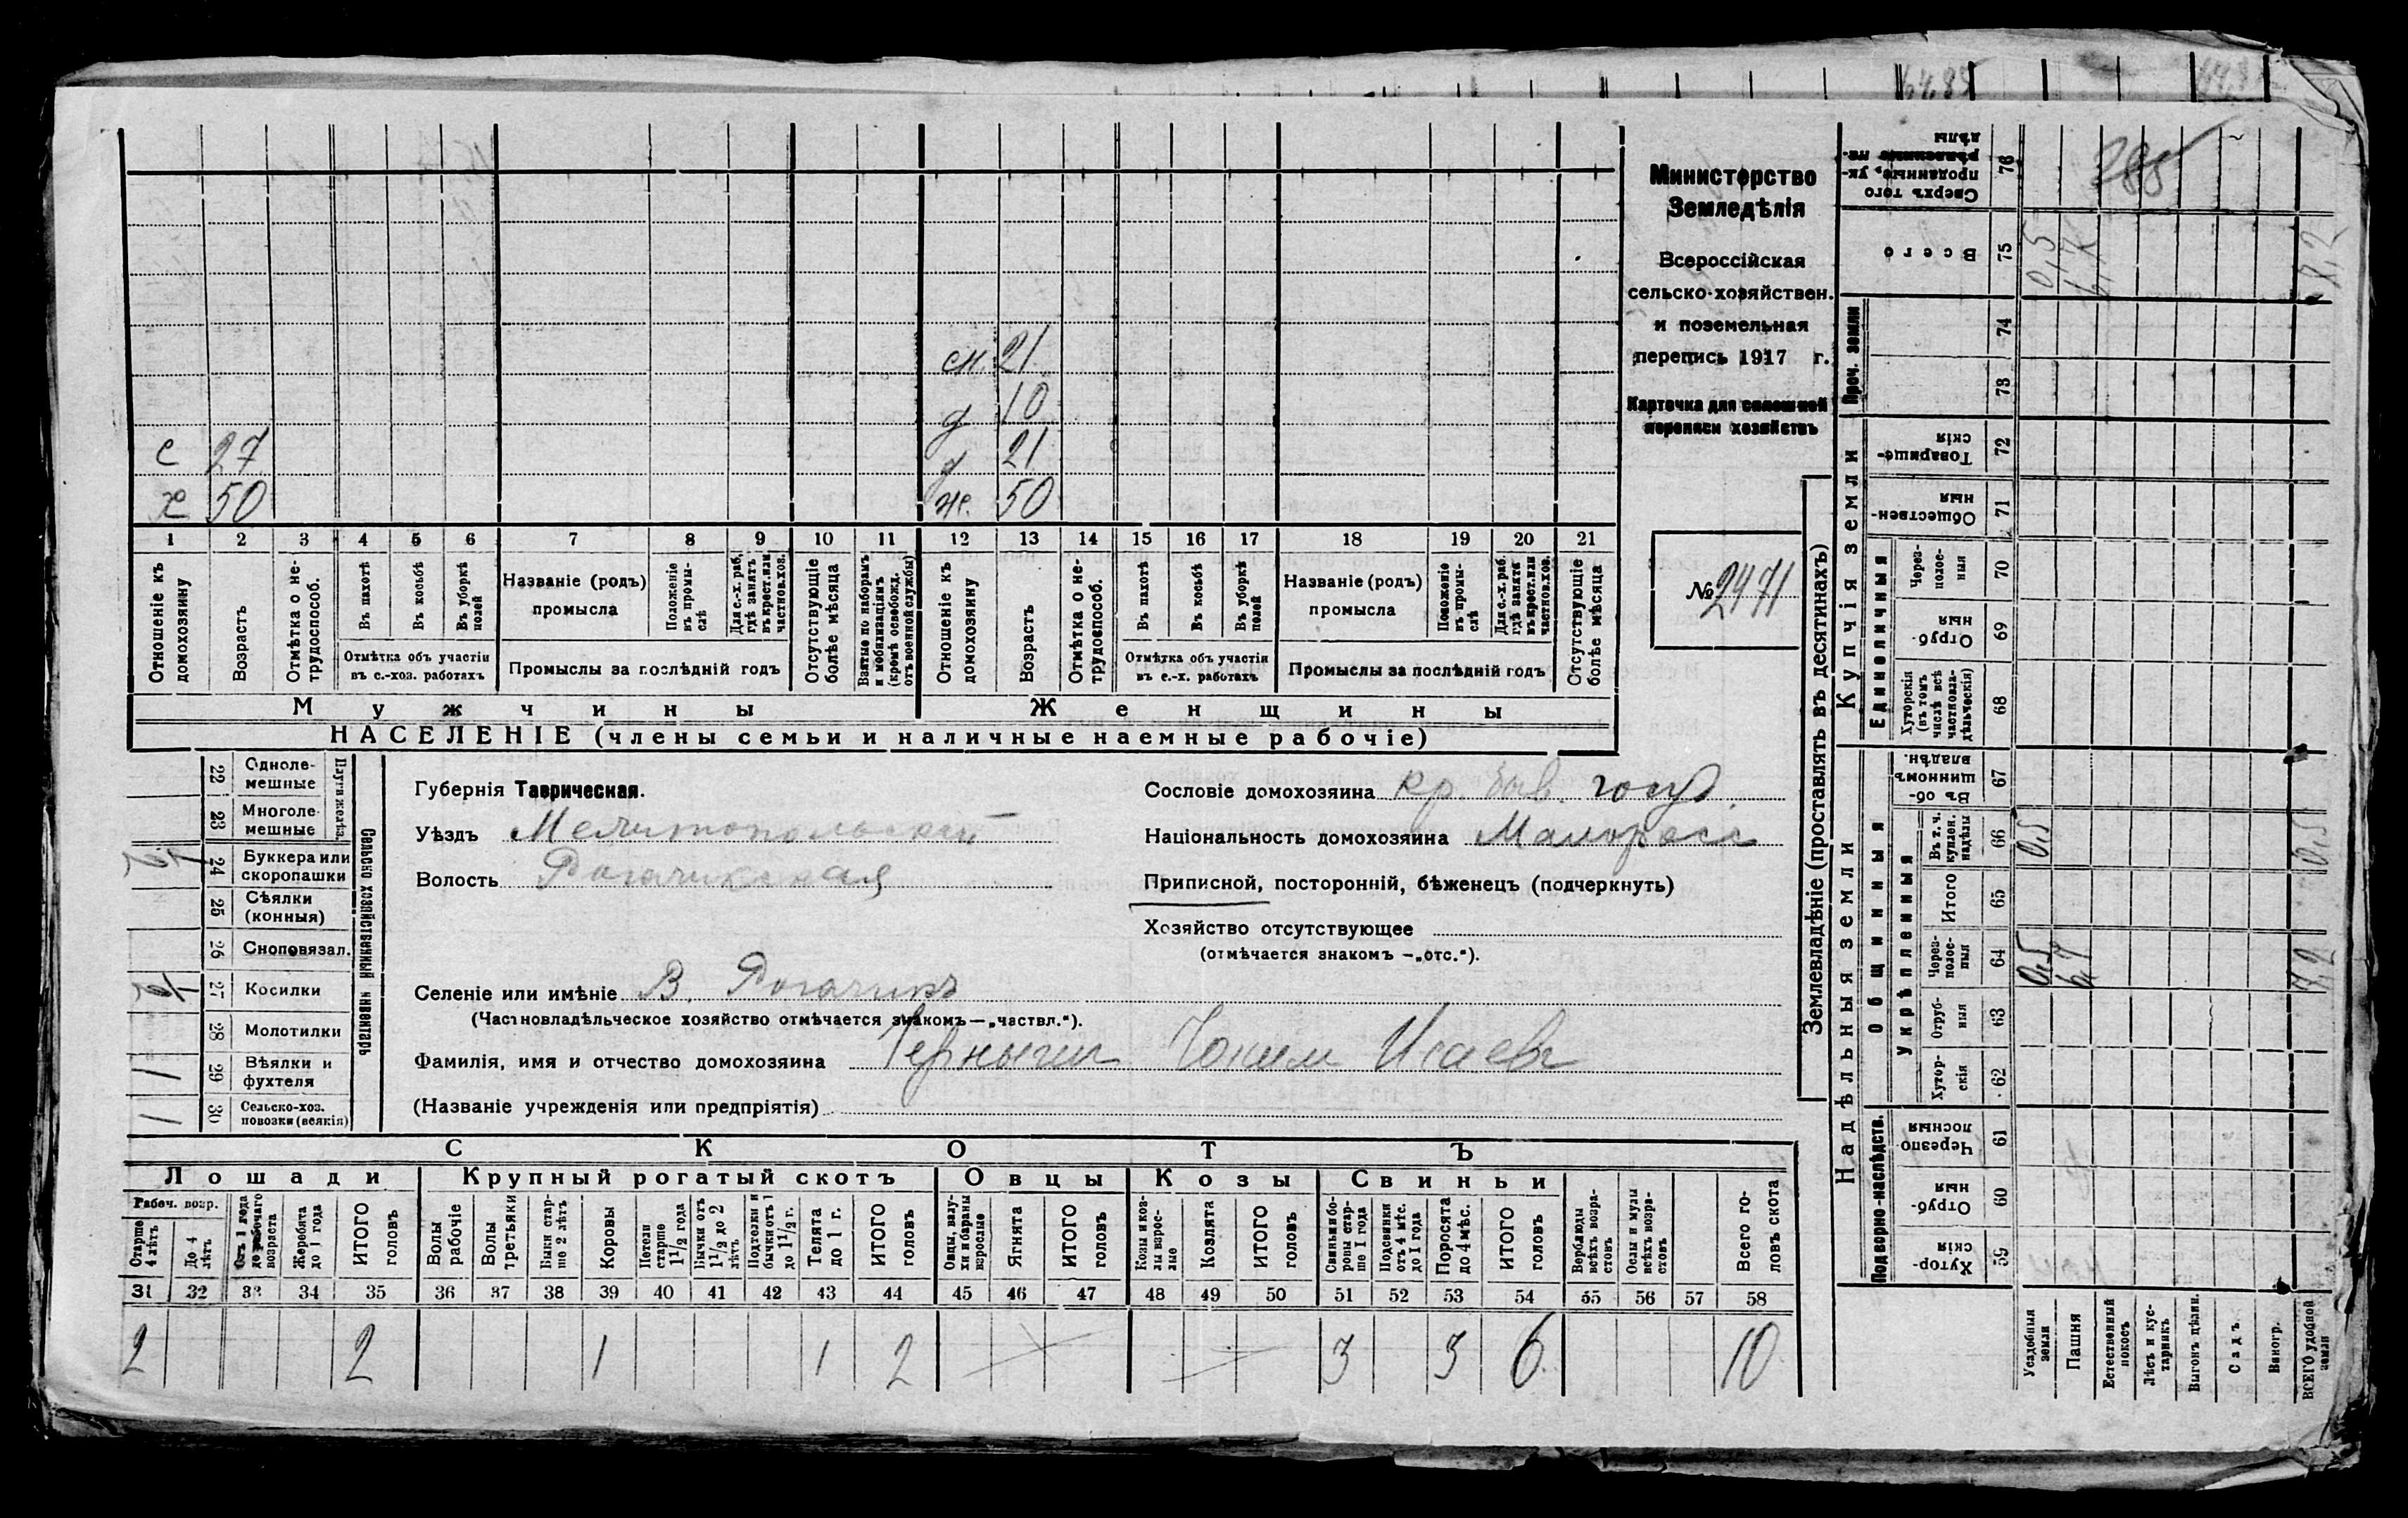 Министерство
Земледѣлія
Всероссійская
сельско-хозяйствен.
и поземельная
перепись 1917 г.
Карточка для сплошной
переписи хозяйствъ
№ 2471
см. 21
д 10
с 27 д 21
х 50 ж. 50
1 2 3 4 5 6 7 8 9 10 11 12 13 14 15 16 17 18 19 20 21
Отношеніе къ домохозяину
Возрастъ
Отмѣтка о не-трудоспособ.
Въ пахотѣ
Въ косьбѣ
Въ уборкѣ полей
Отмѣтка объ участіи въ с.-хоз. работахъ
Названіе (родъ) промысла
Положеніе въ промы-слѣ
Для с.-х. раб. гдѣ занятъ въ крест. или частновл. хоз.
Промыслы за послѣдній годъ
Отсутствующіе болѣе мѣсяца
Взятые по наборамъ и мобилизаціямъ (кромѣ освобожд. отъ военной службы)
Отношеніе къ домохозяину
Возрастъ
Отмѣтка о не-трудоспособ.
Въ пахотѣ
Въ косьбѣ
Въ уборкѣ полей
Отмѣтка объ участіи въ с.-х. работахъ
Названіе (родъ) промысла
Положеніе въ промы-слѣ
Для с.-х. раб. гдѣ занята въ крест. или частнов. хоз.
Промыслы за послѣдній годъ
Отсутствующіе болѣе мѣсяца
Мужчины Женщины
НАСЕЛЕНІЕ (члены семьи и наличные наемные рабочіе)
Сельско хозяйственный инвентарь
Плуги желѣз.
22 Одноле-мешные
23 Многоле-мешные
24 Буккера или скоропашки
25 Сѣялки (конныя)
26 Сноповязал.
27 Косилки
28 Молотилки
29 Вѣялки и фухтеля 1
30 Сельско-хоз. повозки (всякія) 1
Губернія Таврическая.
Уѣздъ Мелитопольскій
Волость Рогачикская
Селеніе или имѣніе В. Рогачикъ
(Частновладѣльческое хозяйство отмѣчается знакомъ—„частвл.“).
Фамилія, имя и отчество домохозяина Исаевъ
(Названіе учрежденія или предпріятія)
Сословіе домохозяина кр. быв. госуд.
Національность домохозяина Малоросс
Приписной, посторонній, бѣженецъ (подчеркнуть)
Хозяйство отсутствующее
(отмѣчается знакомъ —„отс.“).
СКОТЪ
Лошади Крупный рогатый скотъ Овцы Козы Свиньи
Рабоч. возр.
Старше 4 лѣтъ
До 4 лѣтъ
Отъ 1 года до рабочаго возраста
Жеребята до 1 года
ИТОГО головъ
Волы рабочіе
Волы третьяки
Быки стар-ше 2 лѣтъ
Коровы
Нетели старше 1 1/2 года
Бычки отъ 1 1/2 до 2 лѣтъ
Подтелки и бычки отъ 1 до 1 1/2 г.
Телята до 1 г.
ИТОГО головъ
Овцы, валу-хи и бараны взрослые
Ягнята
ИТОГО головъ
Козы и коз-лы взрос-лые
Козлята
ИТОГО головъ
Свиньи и бо-ровы стар-ше 1 года
Подсвинки отъ 4 мѣс. до 1 года
Поросята до 4 мѣс.
ИТОГО головъ
Верблюды всѣхъ возра-стовъ
Ослы и мулы всѣхъ возра-стовъ
Всего го-ловъ скота
31 32 33 34 35 36 37 38 39 40 41 42 43 44 45 46 47 48 49 50 51 52 53 54 55 56 57 58
2 2 1 1 2 3 3 6 10
Землевладѣніе (проставлять въ десятинахъ)
Надѣльныя земли
Купчія земли
Проч. земли
Подворно-наслѣдств.
Общинныя
Укрѣпленныя
Единоличныя
Хутор-скія 59
Отруб-ныя 60
Черезпо-лосныя 61
Хутор-скія 62
Отруб-ныя 63
Через-полос-ныя 64 0,5 6,7 7,2
Итого 65
Въ т. ч. куплен. надѣлы 66 0,5 0,5
Въ об-щинномъ владѣн. 67
Хуторскія (въ томъ числѣ всѣ частновла-дѣльческія) 68
Отруб-ныя 69
Через-полос-ныя 70
Обществен-ныя 71
Товарище-скія 72
73
74
Всего 75 0,5 7,2
Сверхъ того проданные, ук-рѣпленные на-дѣлы 76
Усадебныя земли
Пашня
Естественный покосъ
Лѣсъ и кус-тарникъ
Выгонъ цѣлин.
Садъ
Виногр.
ВСЕГО удобной земли